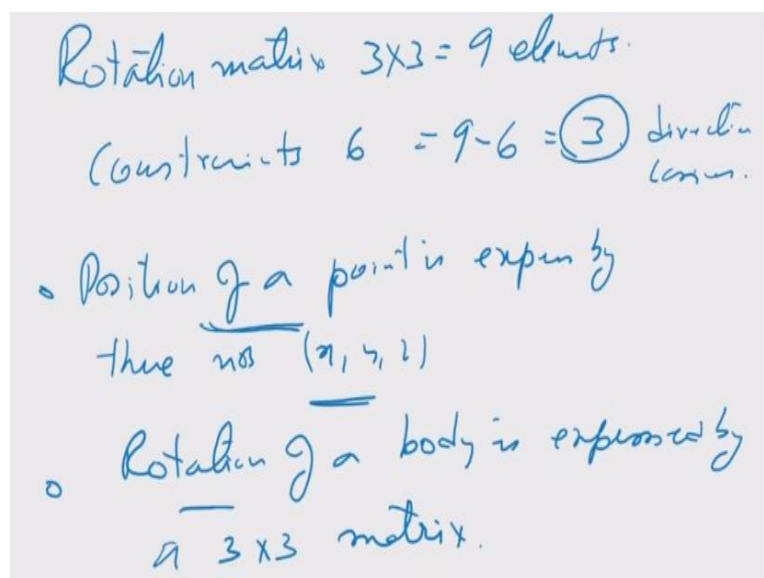 Rotation matrix 3x3 = 9 elements.
Constraints 6 = 9-6 = 3 direction cosines.
• Position of a point is expressed by
three nos (x, y, z)
• Rotation of a body is expressed by
a 3x3 matrix.